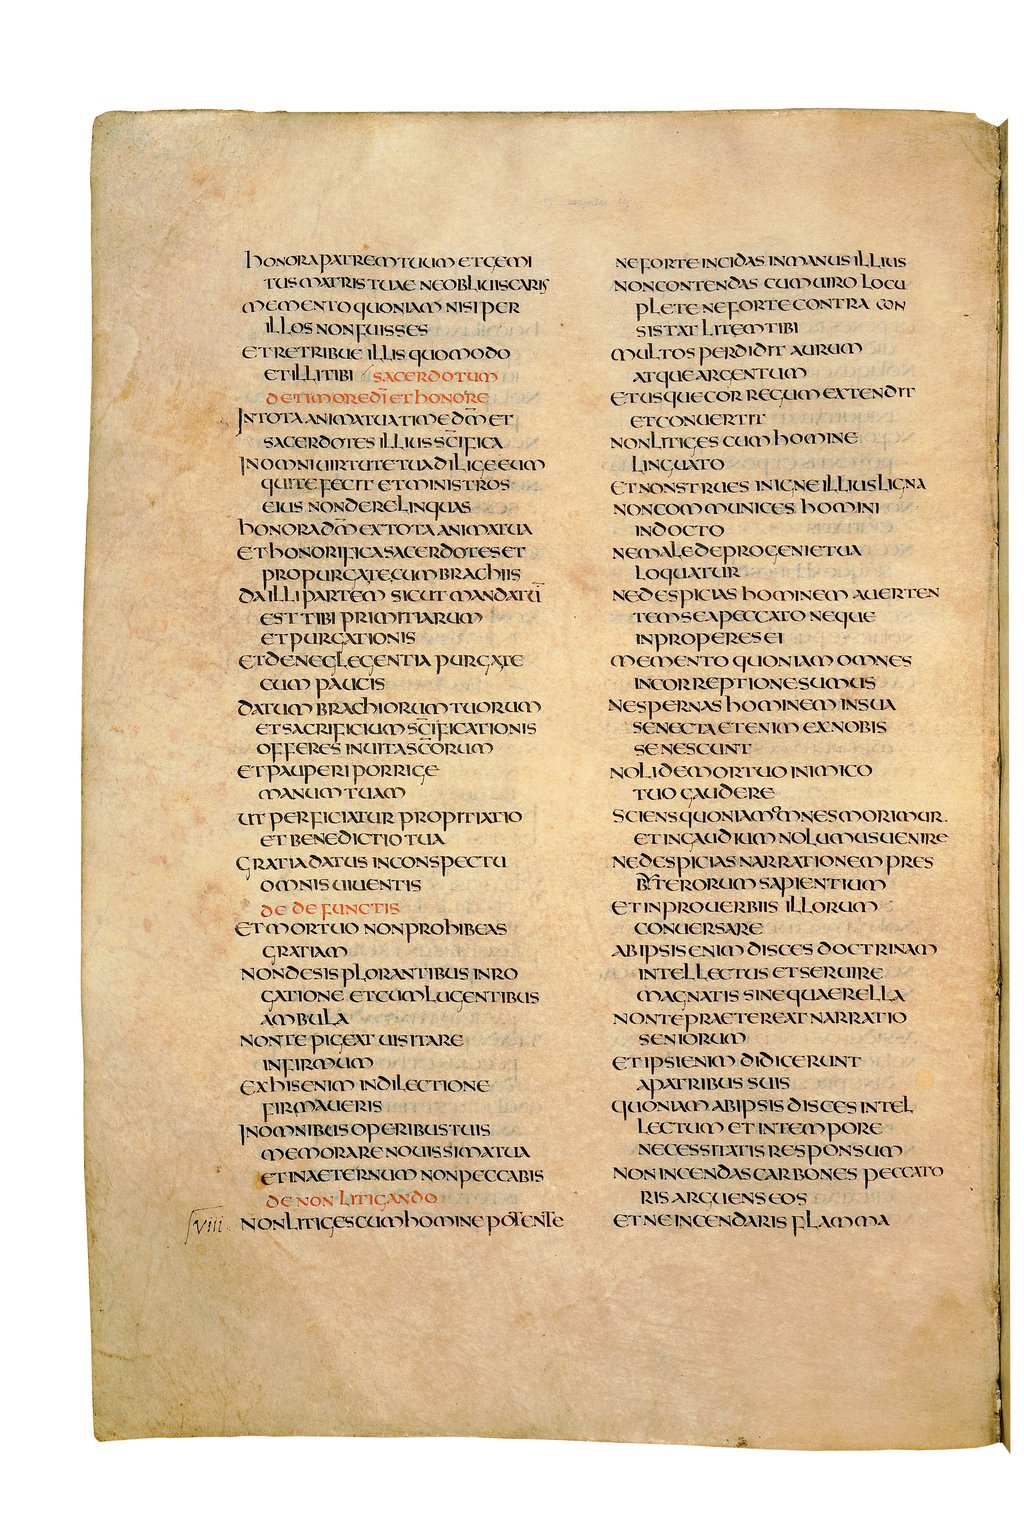 HONORA PATREM TUUM ET GEMI
TUS MATRIS TUAE NE OBLIUISCARIS
MEMENTO QUONIAM NISI PER
ILLOS NON FUISSES
ET RETRIBUE ILLIS QUOMODO
ET ILLI TIBI SACERDOTUM
DE TIMORE DI ET HONORE
IN TOTA ANIMA TUA TIME DM ET
SACERDOTES ILLIUS SCIFICA
IN OMNI UIRTUTE TUA DILIGE EUM
QUI TE FECIT ET MINISTROS
EIUS NON DERELINQUAS
HONORA DM EX TOTA ANIMA TUA
ET HONORIFICA SACERDOTES ET
PROPURGA TE CUM BRACHIIS
DA ILLI PARTEM SICUT MANDATU
EST TIBI PRIMITIARUM
ET PURGATIONIS
ET DE NEGLEGENTIA PURGA TE
CUM PAUCIS
DATUM BRACHIORUM TUORUM
ET SACRIFICIUM SCIFICATIONIS
OFFERES INUITA SCORUM
ET PAUPERI PORRIGE
MANUM TUAM
UT PERFICIATUR PROPITIATIO
ET BENEDICTIO TUA
GRATIA DATUS IN CONSPECTU
OMNIS UIUENTIS
DE DEFUNCTIS
ET MORTUO NON PROHIBEAS
GRATIAM
NON DESIS PLORANTIBUS IN RO
GATIONE ET CUM LUGENTIBUS
AMBULA
NON TE PIGEAT UISITARE
INFIRMUM
EX HIS ENIM IN DILECTIONE
FIRMAUERIS
IN OMNIBUS OPERIBUS TUIS
MEMORARE NOUISSIMA TUA
ET IN AETERNUM NON PECCABIS
DE NON LITIGANDO
VIII NON LITIGES CUM HOMINE POTENTE
NE FORTE INCIDAS IN MANUS ILLIUS
NON CONTENDAS CUM UIRO LOCU
PLETE NE FORTE CONTRA CON
SISTAT LITEM TIBI
MULTOS PERDIDIT AURUM
ATQUE ARGENTUM
ET USQUE COR REGUM EXTENDIT
ET CONUERTIT
NON LITIGES CUM HOMINE
LINGUATO
ET NON STRUES IN IGNE ILLIUS LIGNA
NON COMMUNICES HOMINI
INDOCTO
NE MALE DE PROGENIE TUA
LOQUATUR
NE DESPICIAS HOMINEM AUERTEN
TEM SE A PECCATO NEQUE
INPROPERES EI
MEMENTO QUONIAM OMNES
IN CORREPTIONE SUMUS
NE SPERNAS HOMINEM IN SUA
SENECTA ETENIM EX NOBIS
SENESCUNT
NOLI DE MORTUO INIMICO
TUO GAUDERE
SCIENS QUONIAM OMNES MORIMUR
ET IN GAUDIUM NOLUMUS UENIRE
NE DESPICIAS NARRATIONEM PRES
BYTERORUM SAPIENTIUM
ET IN PROUERBIIS ILLORUM
CONUERSARE
AB IPSIS ENIM DISCES DOCTRINAM
INTELLECTUS ET SERUIRE
MAGNATIS SINE QUAERELLA
NON TE PRAETEREAT NARRATIO
SENIORUM
ET IPSI ENIM DIDICERUNT
A PATRIBUS SUIS
QUONIAM AB IPSIS DISCES INTEL
LECTUM ET IN TEMPORE
NECESSITATIS RESPONSUM
NON INCENDAS CARBONES PECCATO
RIS ARGUENS EOS
ET NE INCENDARIS FLAMMA